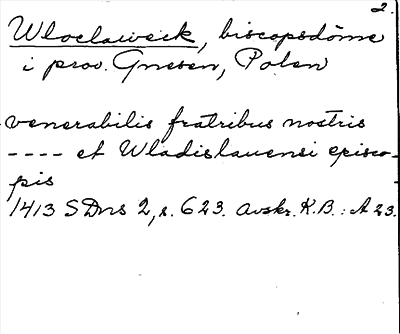 2.
Wloclaweck, biscopsdöme
i prov. Gnesen, Polen
venerabilis fratribus nostris
---- et Wladislauensi episco-
pis
1413 SDns 2, s. 623. Avskr. K.B.: A 23.